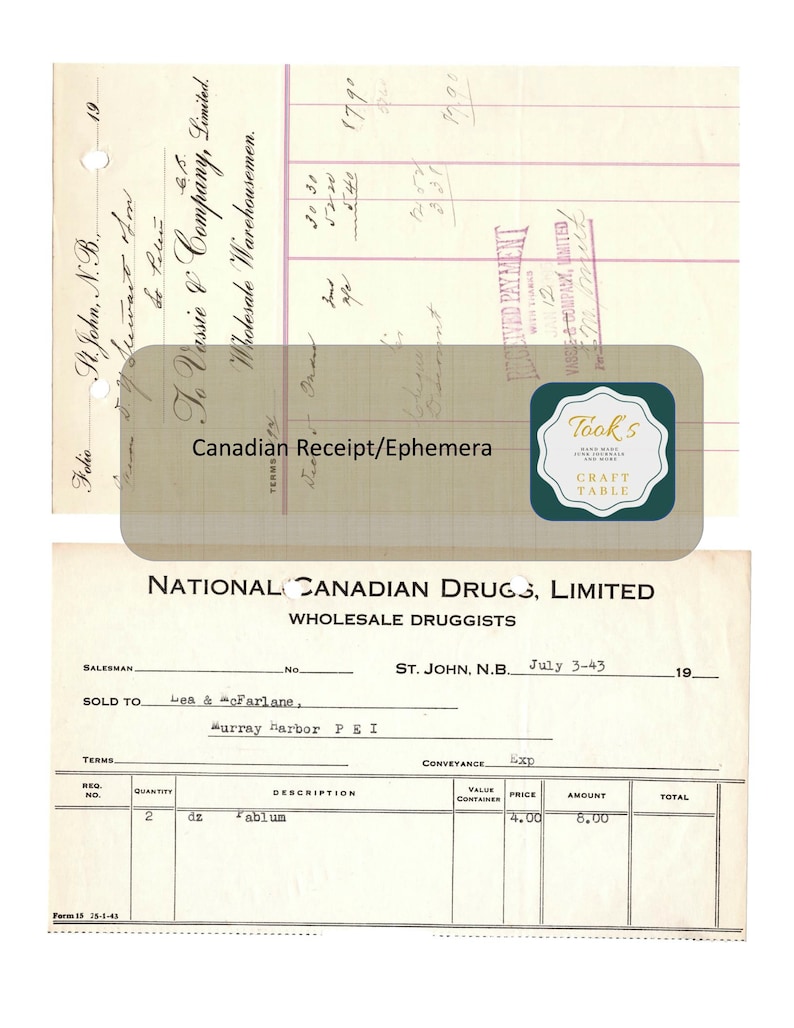 Folio
St. John, N. B., 19
To Vassie & Company, Limited.
Wholesale Warehousemen.
TERMS
30 30
52 20
5 40
87.90
87.90
Discount
RECEIVED PAYMENT
WITH THANKS
JAN 12
VASSIE & COMPANY, LIMITED
Per
Canadian Receipt/Ephemera
Took's
HAND MADE
JUNK JOURNALS
AND MORE
CRAFT
TABLE
NATIONAL CANADIAN DRUGS, LIMITED
WHOLESALE DRUGGISTS
SALESMAN No. ST. JOHN, N.B. July 3-43 19
SOLD TO Lea & McFarlane,
Murray Harbor P E I
TERMS CONVEYANCE Exp
REQ. NO. QUANTITY DESCRIPTION VALUE CONTAINER PRICE AMOUNT TOTAL
2 dz Pablum 4.00 8.00
Form 15 75-1-43